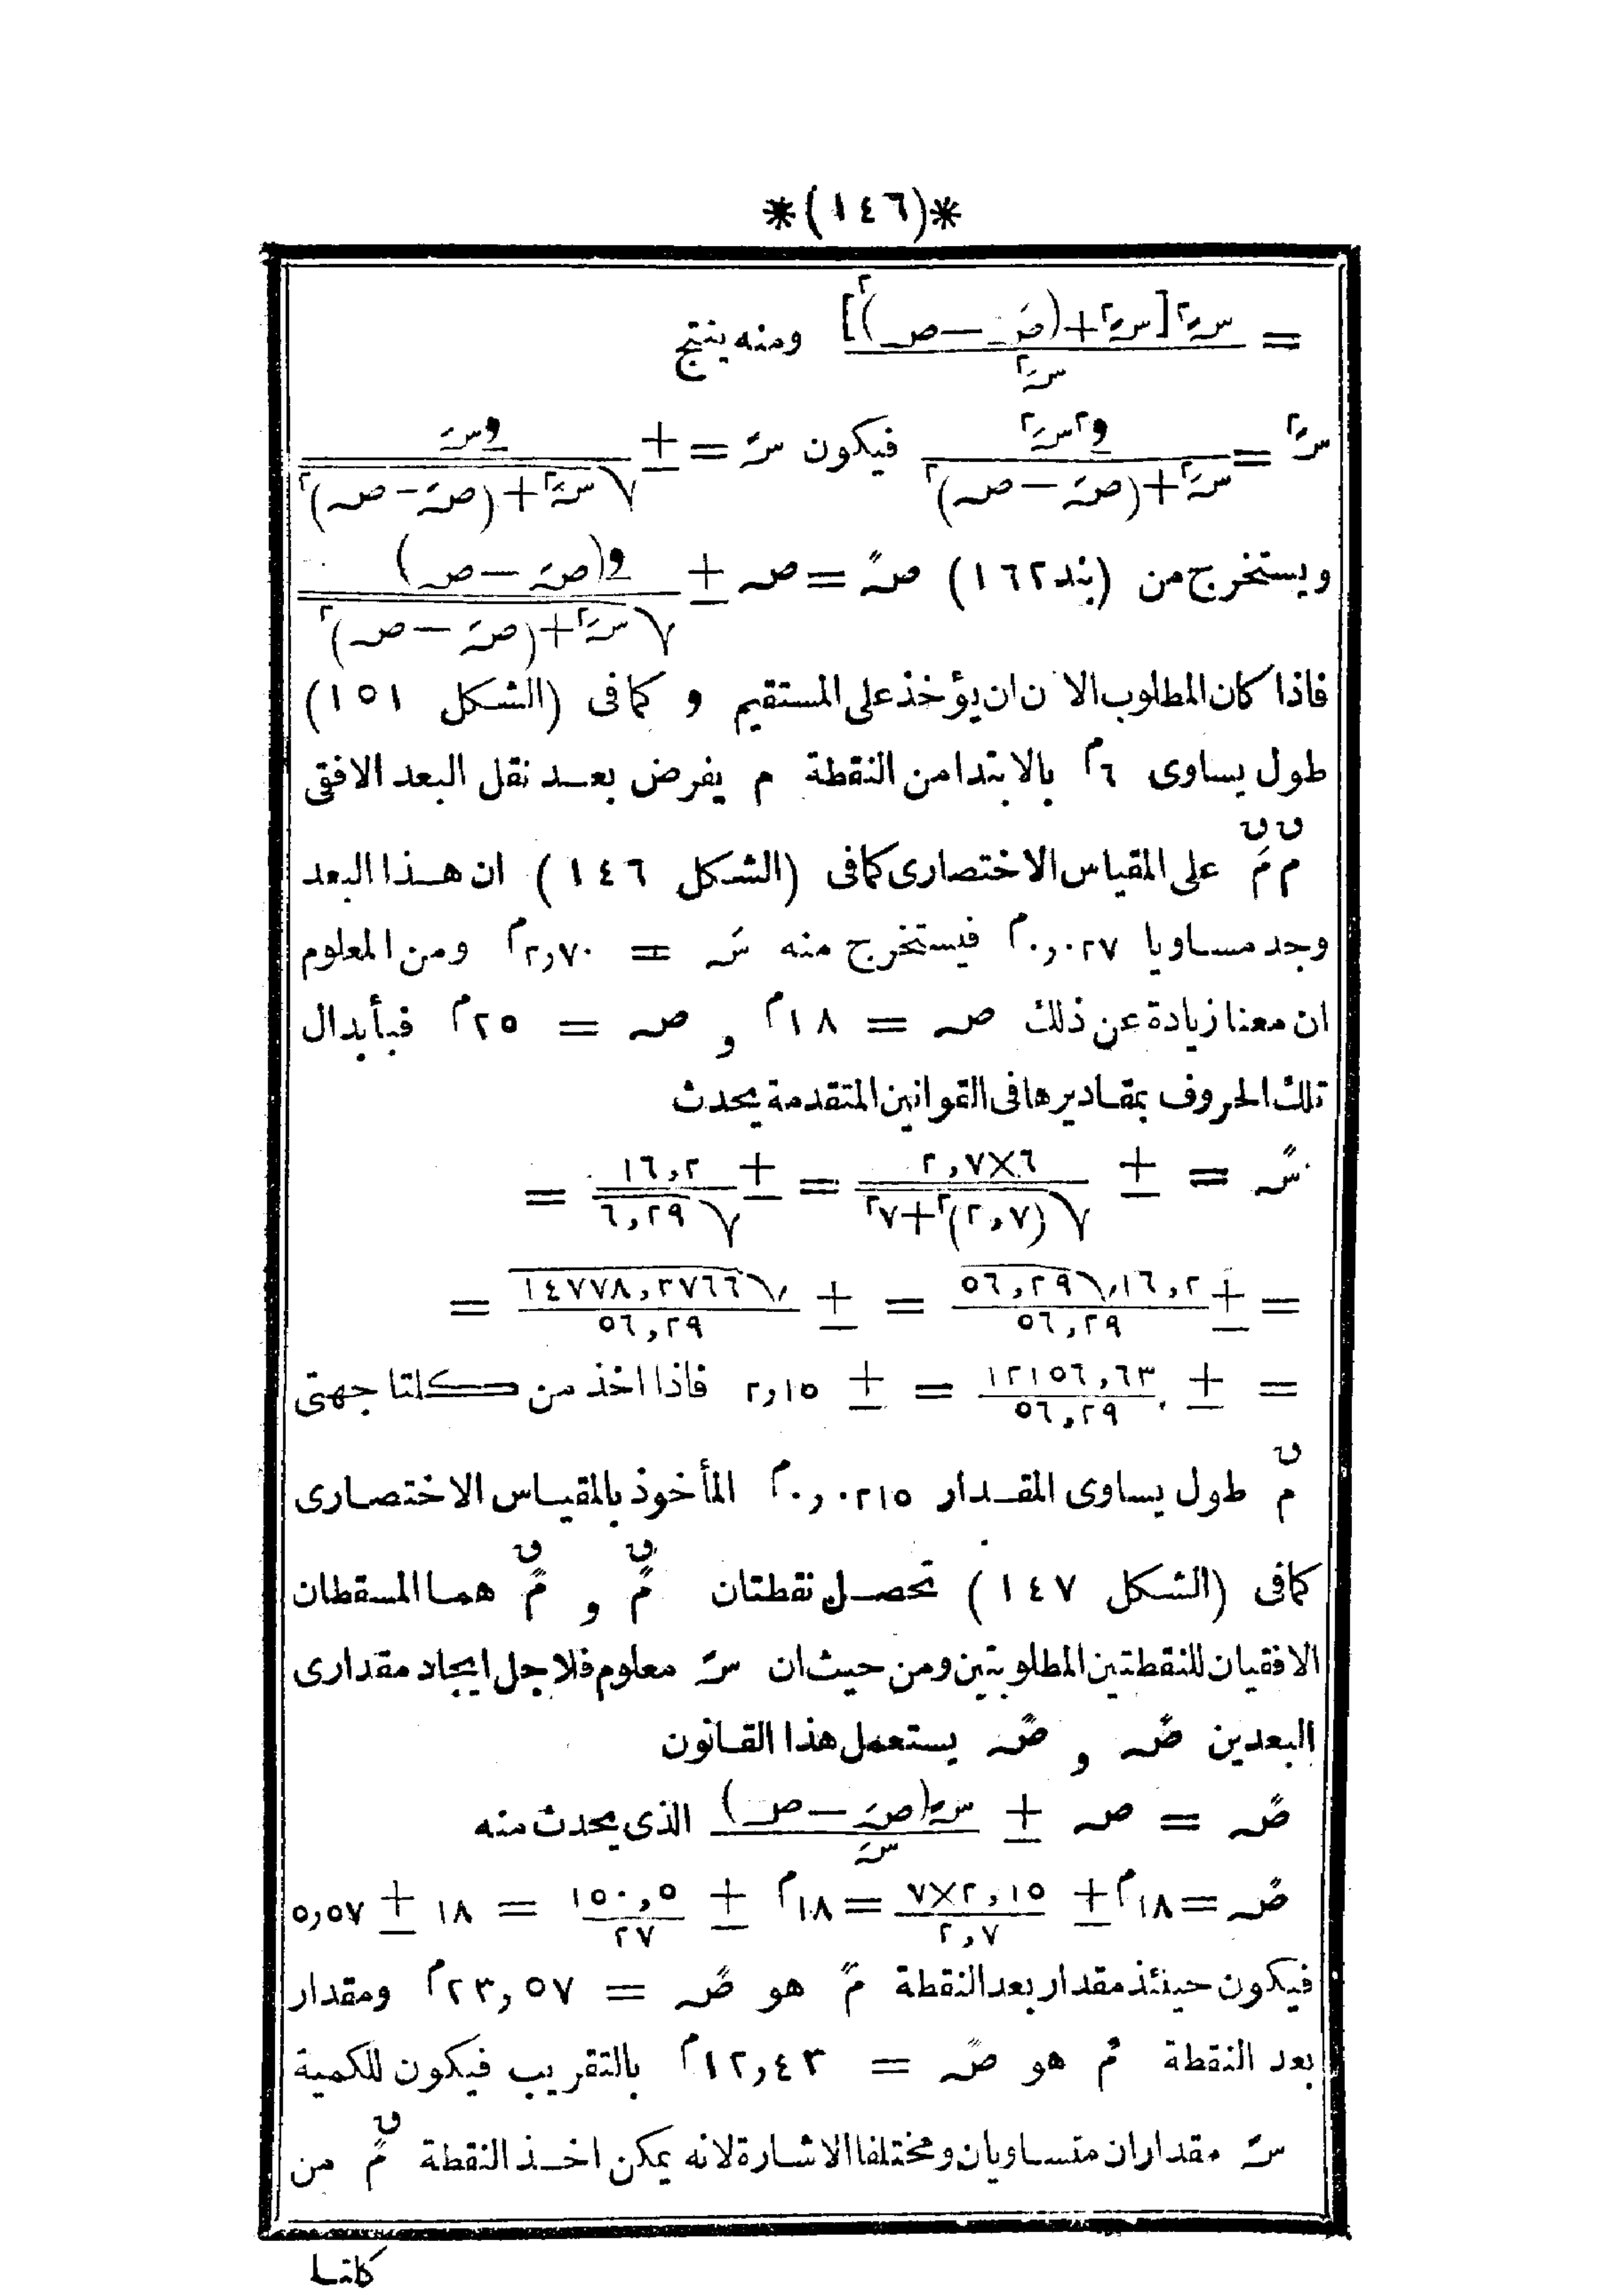 *(١٤٦)*
= س٢[س٢+(صَ−ص)٢] / سَ٢ ومنه ينتج
سً٢ = و٢سَ٢ / سَ٢+(صَ−ص)٢ فيكون سً = ± وسَ / √سَ٢+(صَ−ص)٢
ويستخرج من (بند ١٦٢) صً = ص ± و(صَ−ص) / √سَ٢+(صَ−ص)٢
فاذا كان المطلوب الآن ان يؤخذ على المستقيم و كمافى (الشكل ١٥١)
طول يساوى ٦م بالابتدا من النقطة م يفرض بعد نقل البعد الافقى
م مَ على المقياس الاختصارى كمافى (الشكل ١٤٦) ان هذا البعد
ن ن
وجد مساويا ٠,٠٢٧م فيستخرج منه سَ = ٢,٧٠م ومن المعلوم
ان معنا زيادة عن ذلك ص = ١٨م و ص = ٢٥م فبأبدال
تلك الحروف بمقاديرها فى القوانين المتقدمة يحدث
سً = ± ٦×٢,٧ / √(٢,٧)٢+٧٢ = ± ١٦,٢ / √٦,٢٩ =
= ± ١٦,٢√٥٦,٢٩ / ٥٦,٢٩ = ± √١٤٧٧٨,٣٧٦٦ / ٥٦,٢٩ =
= ± ١٢١٥٦,٦٣ / ٥٦,٢٩ = ± ٢,١٥ فاذا اخذ من كلتا جهتى
ن
مَ طول يساوى المقدار ٠,٠٢١٥م المأخوذ بالمقياس الاختصارى
ن ن
كمافى (الشكل ١٤٧) تحصل نقطتان مً و مً هما المسقطان
الافقيان للنقطتين المطلوبتين ومن حيث ان سً معلوم فلاجل ايجاد مقدارى
البعدين صً و صً يستعمل هذا القانون
صً = ص ± سً(صَ−ص) / سَ الذى يحدث منه
صً = ١٨م ± ٧×٢,١٥ / ٢,٧ = ١٨م ± ١٥٠,٥ / ٢٧ = ١٨ ± ٥,٥٧
فيكون حينئذ مقدار بعد النقطة مً هو صً = ٢٣,٥٧م ومقدار
بعد النقطة مً هو صً = ١٢,٤٣م بالتقريب فيكون للكمية
ن
سً مقداران متساويان ومختلفا الاشارة لانه يمكن اخذ النقطة مً من
كلتا